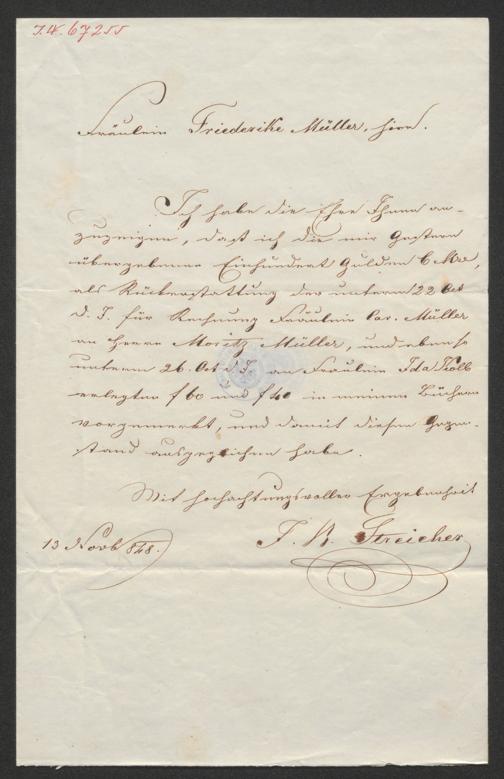 I.N. 67255
Fräulein Friederike Müller, hier.
Ich habe die Ehre Ihnen an-
zuzeigen, daß ich die mir gestern
übergebenen Einhundert Gulden C Mze,
als Rückerstattung der unterm 22 Oct
d. J. für Rechnung Fräulein Car. Müller
an Herrn Moritz Müller, und ebenso
unterm 26. Oct d. J. an Fräulein Ida Kolb
erlegten f 60 u f 40 in meinen Büchern
vorgemerkt, und damit diesen Gegen-
stand ausgeglichen habe.
Mit hochachtungsvoller Ergebenheit
J. B. Streicher
13 Novb 848.